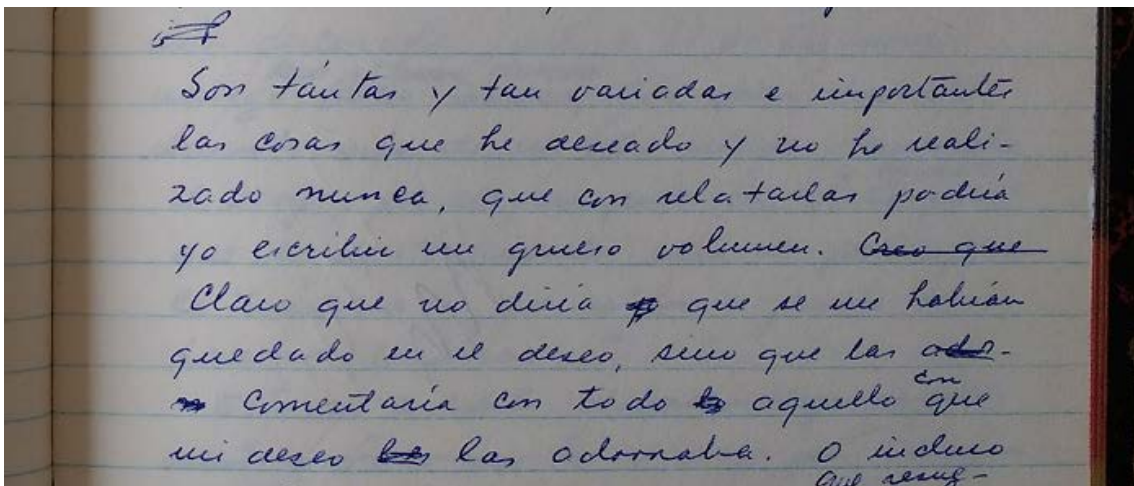 Son tántas y tan variadas e importantes
las cosas que he deseado y no he reali-
zado nunca, que con relatarlas podría
yo escribir un grueso volumen. Creo que
Claro que no diría que se me habían
quedado en el deseo, sino que las ado-
comentaría con todo aquello con que
mi deseo las adornaba. O incluso
que